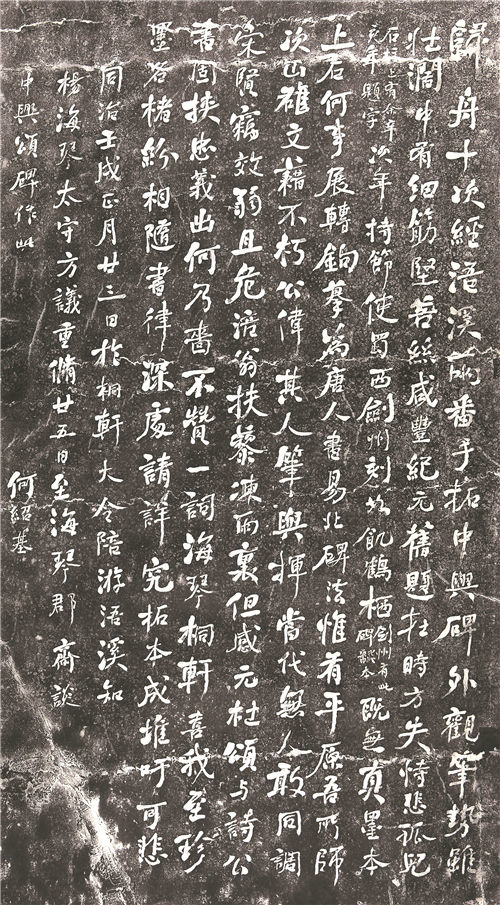 歸舟十次經浯溪兩番手拓中興碑外觀筆勢雖
壯濶中有細筋堅若絲咸豐紀元舊題在時方失恃悲孤兒
石柱上有余辛亥年題字次年持節使蜀西劍州刻如飢鶴栖劍州有此碑翻本既無真墨本
上石何事展轉鉤摹爲唐人書易北碑法惟有平原吾所師
次山雄文藉不朽公偉其人筆與揮當代無人敢同調
宋賢竊效弱且危涪翁扶藜凍雨裏但感元杜頌与詩公
書固挾忠義出何乃嗇不贊一詞海琴桐軒喜我至珍
墨名楮紛相隨書律深處請詳究拓本成堆吁可悲
同治壬戌正月廿三日於桐軒大令陪游浯溪知
楊海琴太守方議重脩廿五日至海琴郡齋談
中興頌碑作此
何紹基